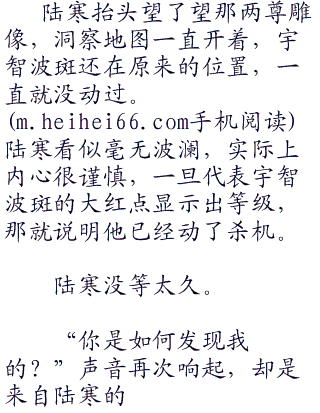 陆寒抬头望了望那两尊雕
像，洞察地图一直开着，宇
智波斑还在原来的位置，一
直就没动过。
(m.heihei66.com手机阅读)
陆寒看似毫无波澜，实际上
内心很谨慎，一旦代表宇智
波斑的大红点显示出等级，
那就说明他已经动了杀机。
陆寒没等太久。
“你是如何发现我
的？”声音再次响起，却是
来自陆寒的